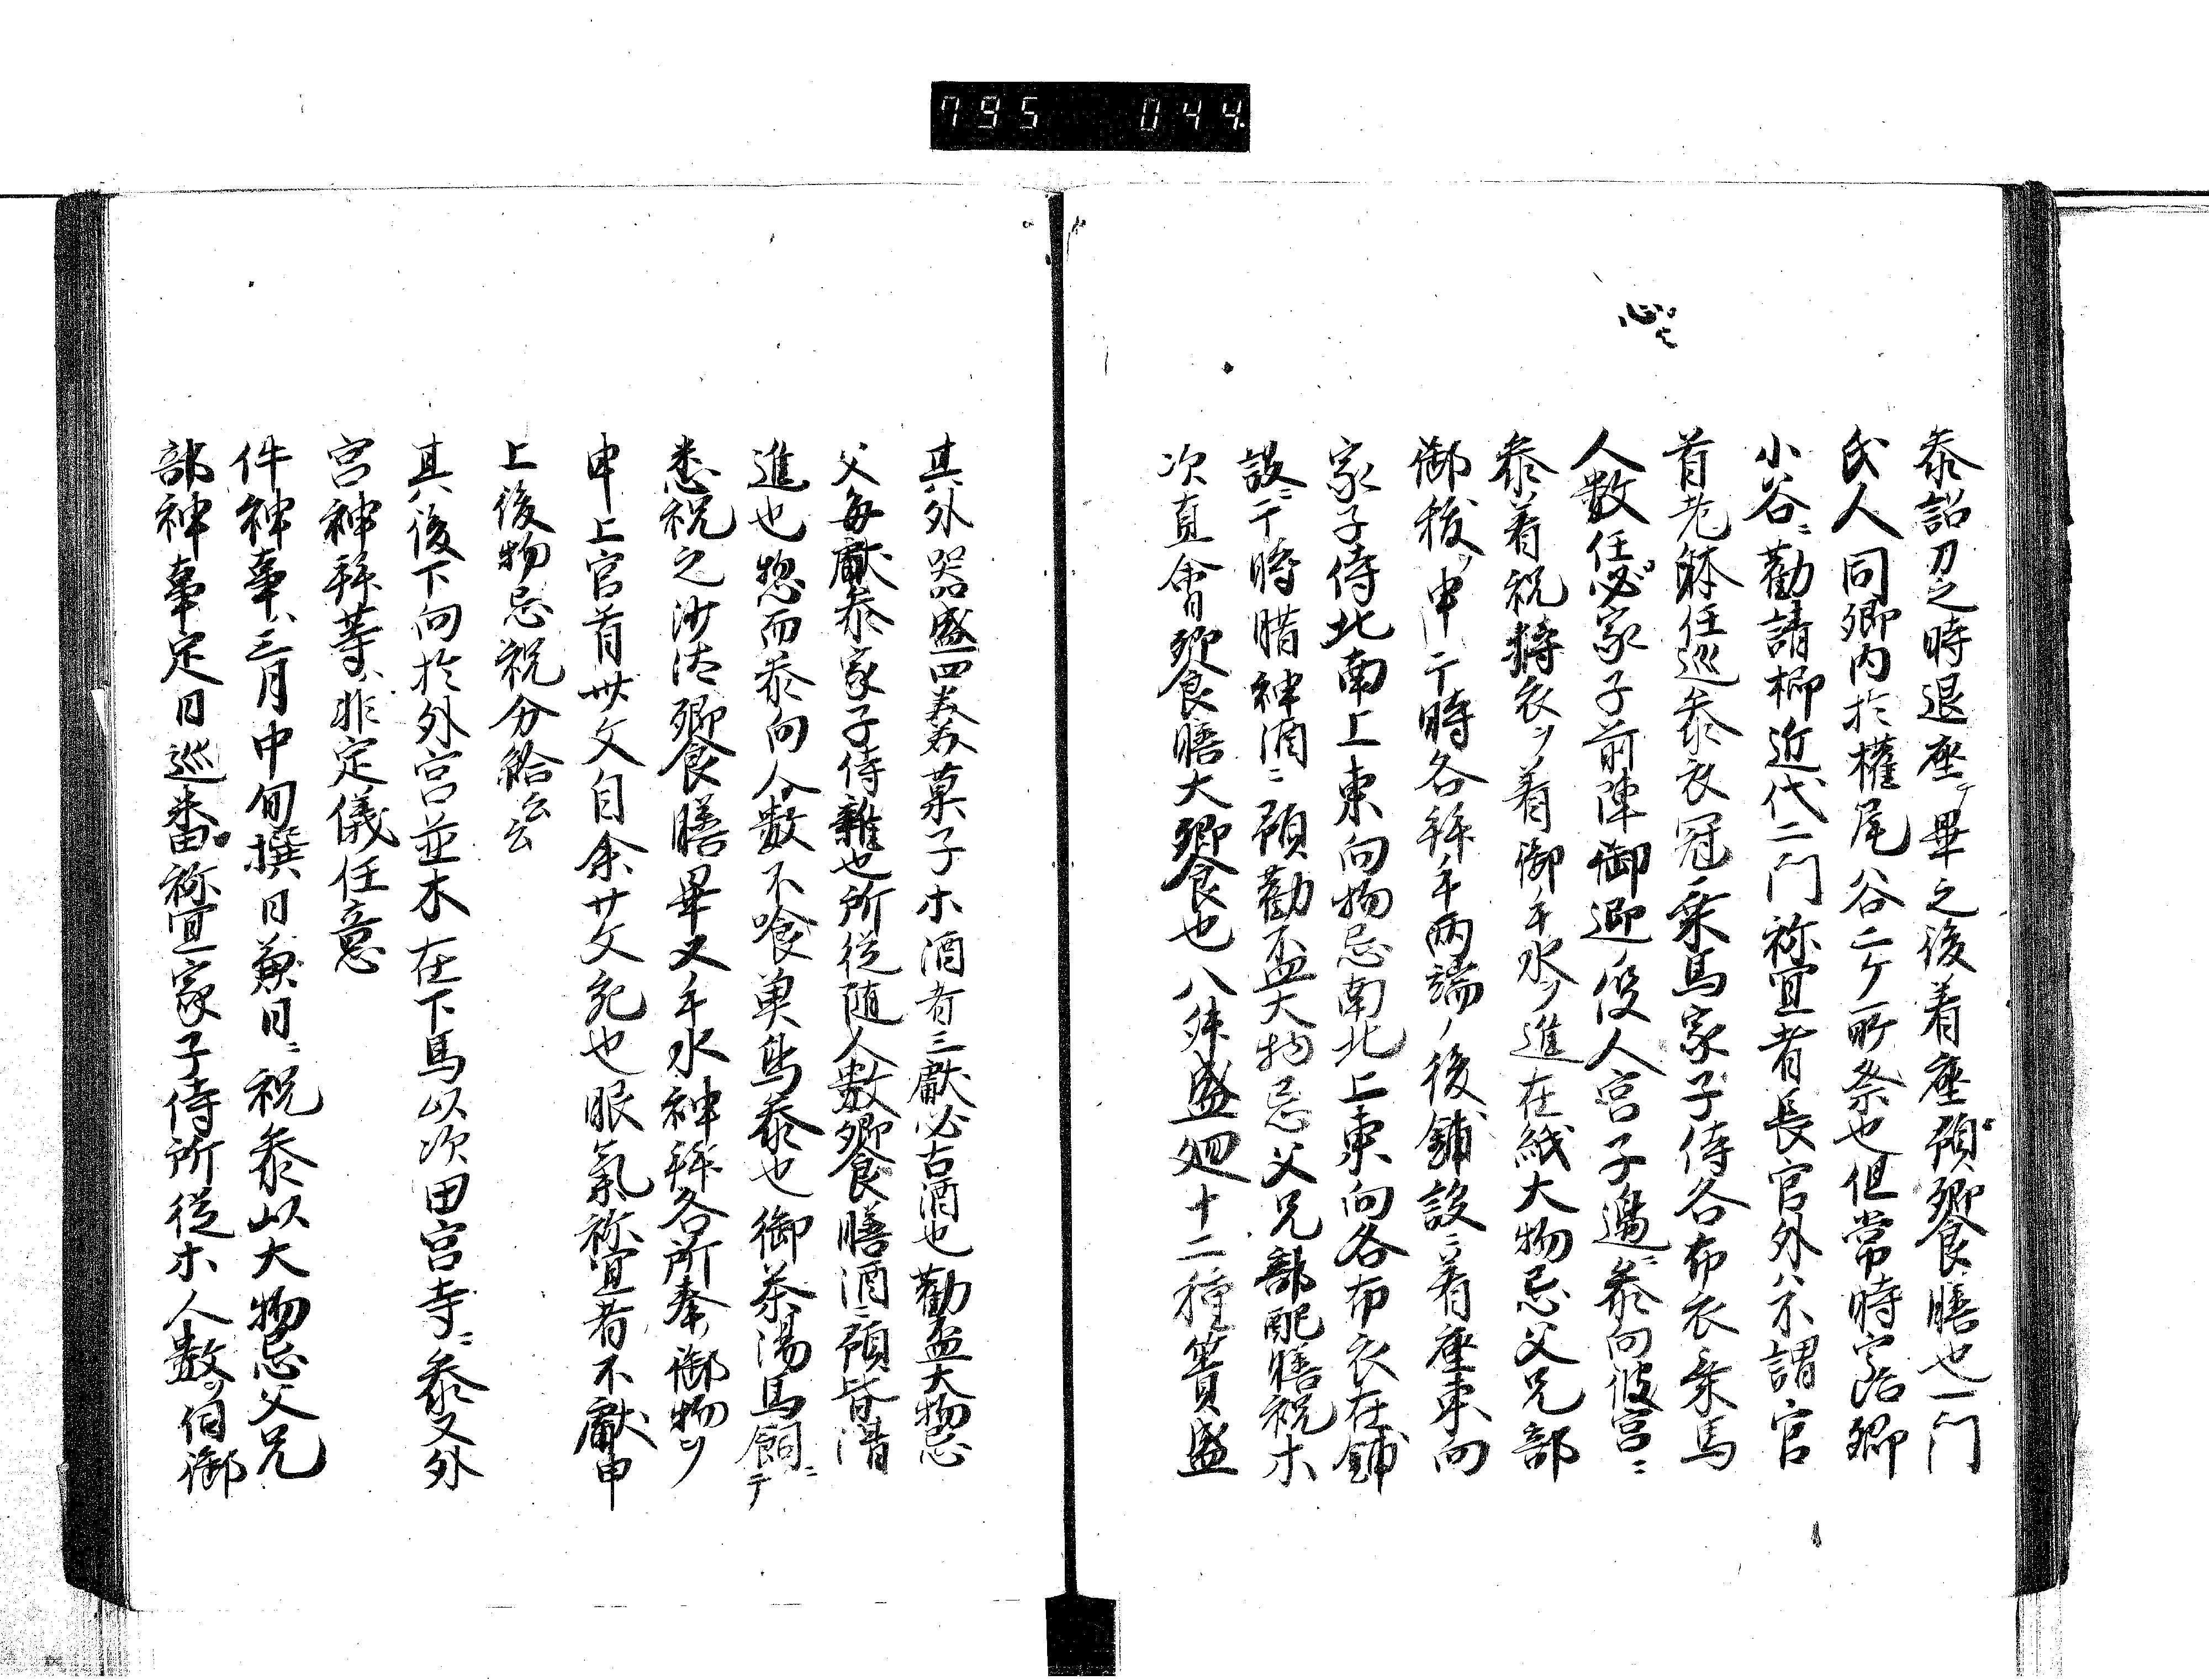 795 044
参詔刀之時退座ヲ畢之後着座預饗膳也一門
氏人同郷内於權尾谷二ケ所祭也但常時宮路郷
小谷ニ勸請抑近代二門祢宜者長官外ハ不謂官
首老躰任巡参衣冠乗馬家子侍各布衣乗馬
人數任必家子前陣御迎ノ役人宮子邊ニ参向彼宮ニ
参着祝狩衣ヲ着御手水ヲ進在紙大物忌父兄部
御祓ヲ申テ時各拜手両端ノ後鋪設ニ着座東向
家子侍北南上東向物忌南北上東向各布衣在鋪
設ニ于時腊神酒ニ預勸盃大物忌父兄部配膳祝木
次直會饗膳大饗也八外盛廻十二種簀盛
其外器盛四美菓子木酒肴三獻必古酒也勸盃大物忌
父毎獻参家子侍雜也所従随人數饗膳酒ニ預皆済
進也惣而参向人數不喰奥鳥参也御茶湯馬飼ニテ
悉祝之沙汰饗膳畢又手水神拜各所奉御物ヲ
申上官首丗文自余廿文充也服氣祢宜者不獻申
上後物忌祝分給云云
其後下向於外宮並木在下馬以次田宮寺ニ参又外
宮神拜等ハ非定儀任意
件神事ハ三月中旬撰日兼日ニ祝参以大物忌父兄
部神事定日巡番祢宜家子侍所従木人數ヲ伺御